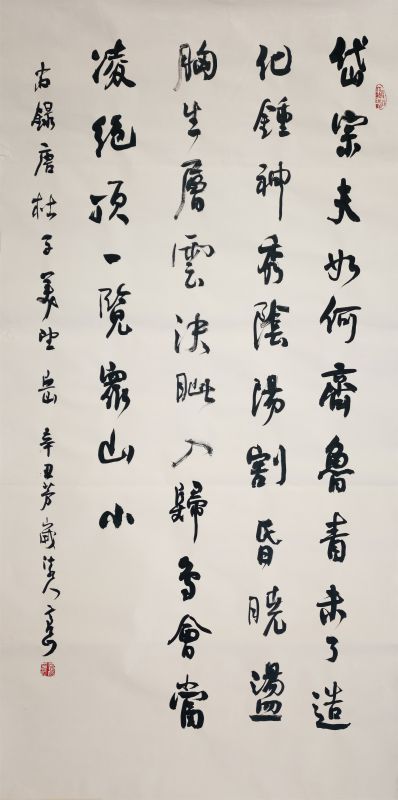 岱宗夫如何齊魯青未了造
化鍾神秀陰陽割昏曉盪
胸生層雲決眦入歸鳥會當
凌絕頂一覽衆山小
右錄唐杜子美望岳 辛丑芳歲